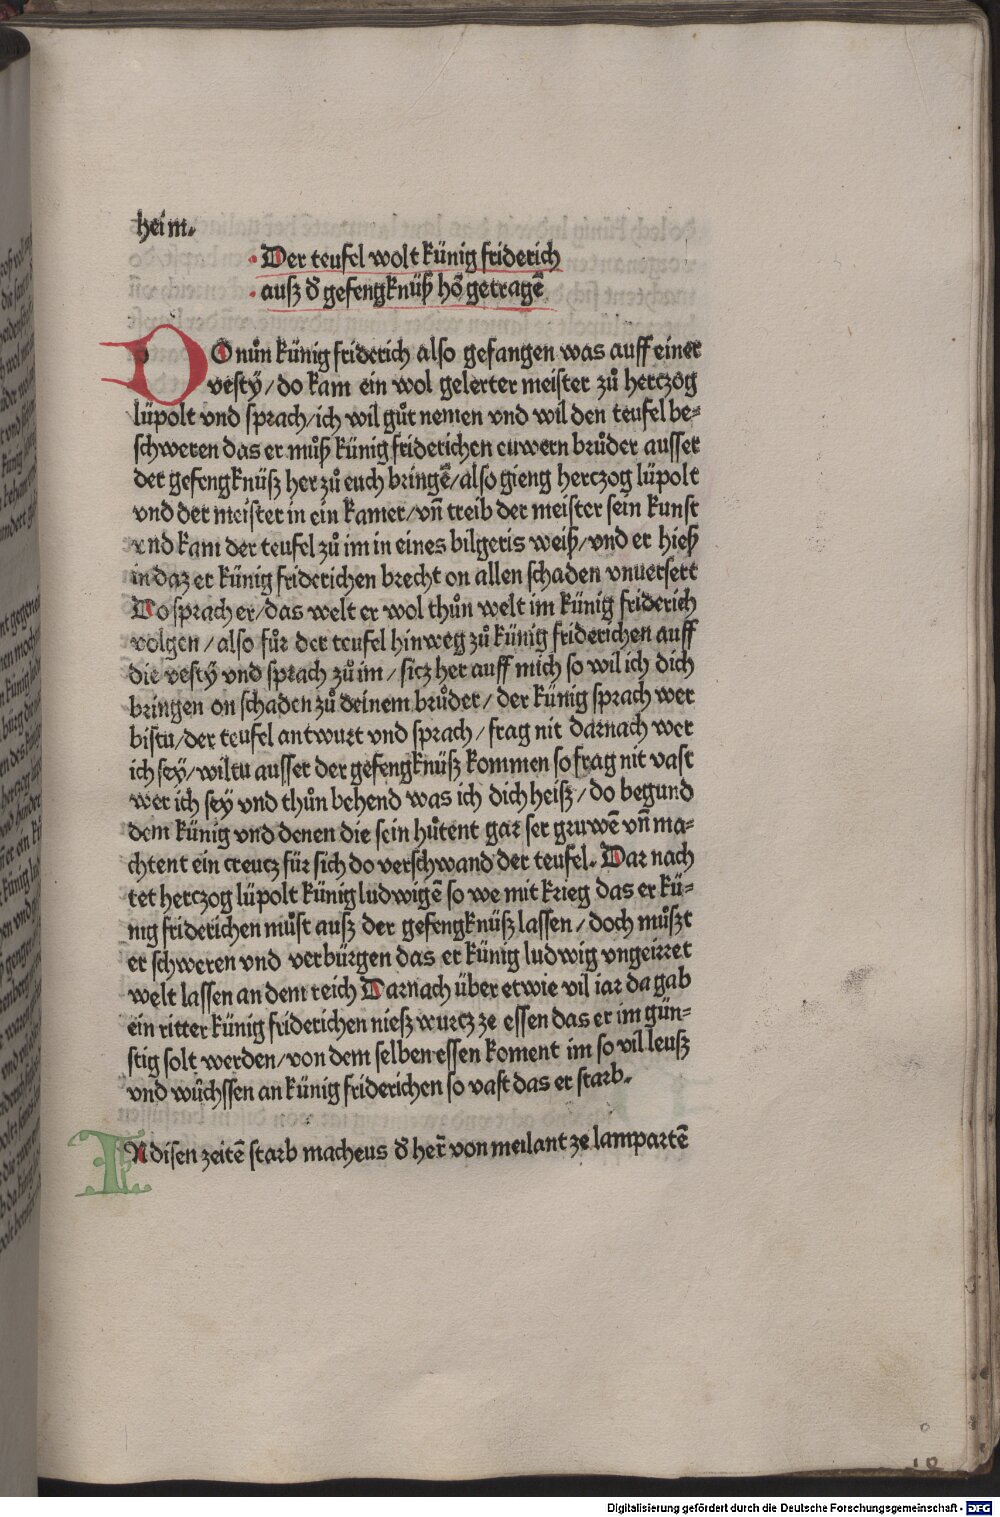 heim.
Der teufel wolt künig friderich
ausz d̕ gefengknüß hō getragē
DO nůn künig friderich also gefangen was auff einer
vestÿ/do kam ein wol gelerter meister zů herczog
lüpolt vnd sprach/ich wil gůt nemen vnd wil den teufel be-
schweren das er můß künig friderichen euwern brůder ausser
der gefengknüsz her zů euch bringē/also gieng herczog lüpolt
vnd der meister in ein kamer/vn̄ treib der meister sein kunst
vnd kam der teufel zů im in eines bilgeris weiß/vnd er hieß
in daz er künig friderichen brecht on allen schaden vnuersert
Do sprach er/das welt er wol thůn welt im künig friderich
volgen/also fůr der teufel hinweg zů künig friderichen auff
die vestÿ vnd sprach zů im/sicz her auff mich so wil ich dich
bringen on schaden zů deinem brůder/der künig sprach wer
bistu/der teufel antwurt vnd sprach/frag nit darnach wer
ich seÿ/wiltu ausser der gefengknüsz kommen so frag nit vast
wer ich seÿ vnd thůn behend was ich dich heisz/do begund
dem künig vnd denen die sein hůtent gar ser gruwē vn̄ ma-
chtent ein creucz für sich do verschwand der teufel. Dar nach
tet herczog lüpolt künig ludwigē so we mit krieg das er kü-
nig friderichen můst ausz der gefengknüsz lassen/doch můszt
er schweren vnd verbürgen das er künig ludwig vngeirret
welt lassen an dem reich Darnach über etwie vil iar da gab
ein ritter künig friderichen niesz wurcz ze essen das er im gün-
stig solt werden/von dem selben essen koment im so vil leusz
vnd wůchssen an künig friderichen so vast das er starb.
IN disen zeitē starb macheus d̕ her̄ von meilant ze lampartē
Digitalisierung gefördert durch die Deutsche Forschungsgemeinschaft - DFG